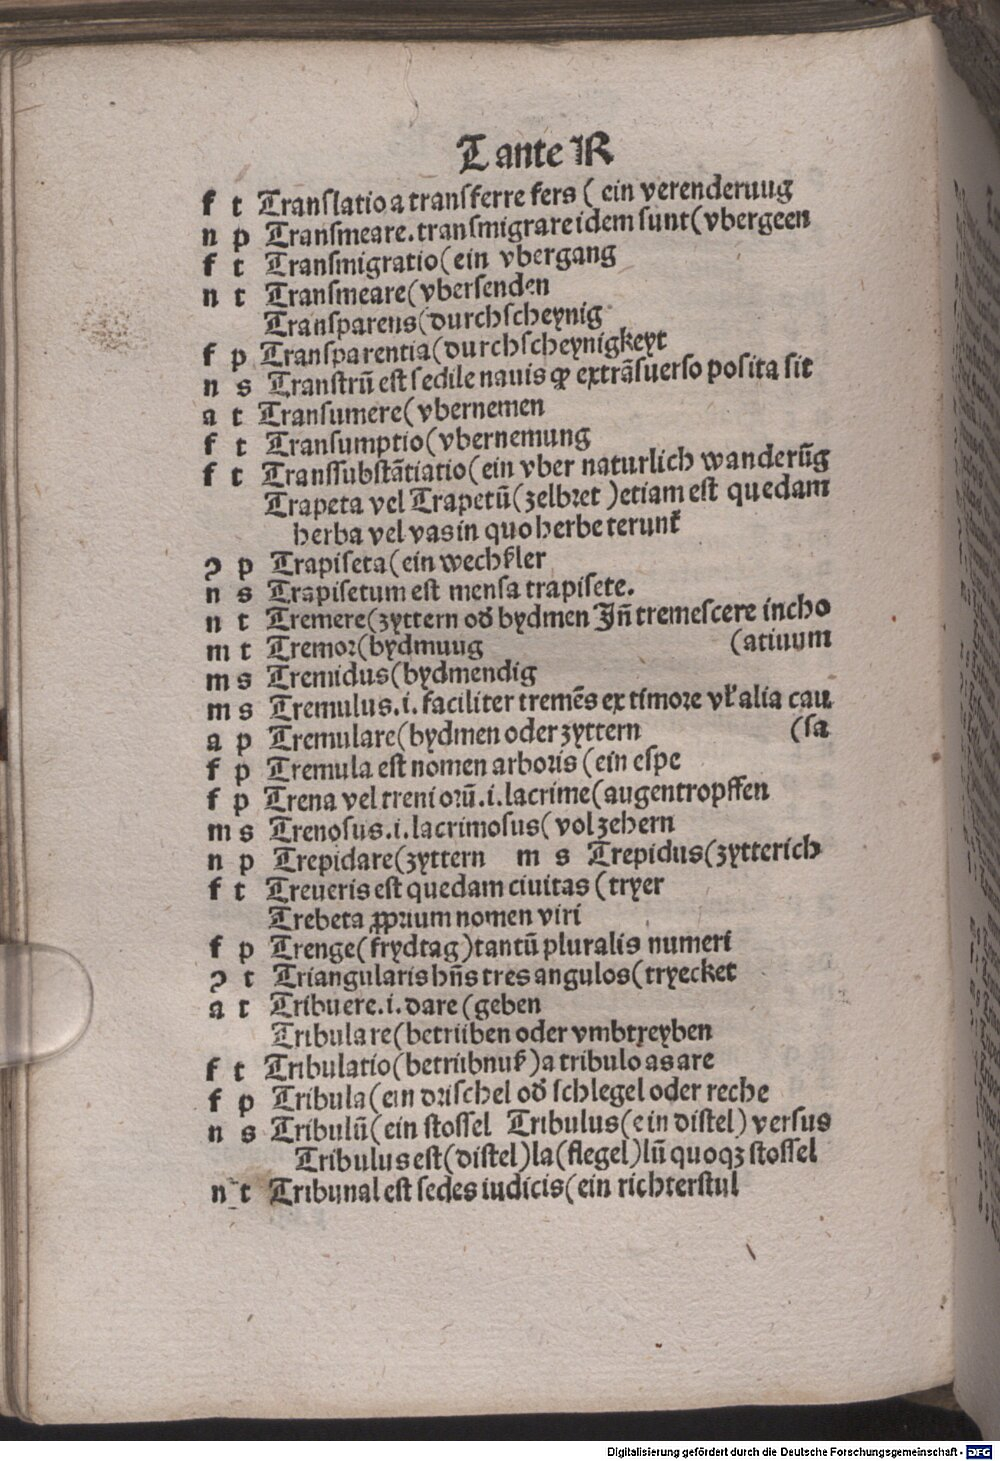 T ante R
f t Translatio a transferre fers ( ein verenderuug
n p Transmeare. transmigrare idem sunt( vbergeen
f t Transmigratio( ein vbergang
n t Transmeare( vbersenden
Transparens( durchscheynig
f p Transparentia( durchscheynigkeyt
n s Transtrū est sedile nauis ꝙ ex trāsuerso posita sit
a t Transumere( vbernemen
f t Transumptio( vbernemung
f t Transsubstātiatio( ein vber naturlich wanderūg
Trapeta vel Trapetū( zelbret ) etiam est quedam
herba vel vas in quo herbe terunt̃
ꝯ p Trapiseta( ein wechsler
n s Trapisetum est mensa trapisete.
n t Tremere( zyttern od̕ bydmen Jn̄ tremescere incho
m t Tremor( bydmuug (atiuum
m s Tremidus( bydmendig
m s Tremulus. i. faciliter tremēs ex timore vl̕ alia cau
a p Tremulare( bydmen oder zyttern (sa
f p Tremula est nomen arboris ( ein espe
f p Trena vel treni orū. i. lacrime( augentropffen
m s Trenosus. i. lacrimosus( vol zehern
n p Trepidare( zyttern m s Trepidus( zytterich
f t Treueris est quedam ciuitas ( tryer
Trebeta ꝓprium nomen viri
f p Trenge( frydtag ) tantū pluralis numeri
ꝯ t Triangularis hn̄s tres angulos( tryecket
a t Tribuere. i. dare ( geben
Tribulare( betrüben oder vmbtreyben
f t Tribulatio( betrübnuß ) a tribulo as are
f p Tribula( ein drischel od̕ schlegel oder reche
n s Tribulū( ein stossel Tribulus( ein distel ) versus
Tribulus est( distel ) la( flegel ) lū quoqꝫ stossel
n t Tribunal est sedes iudicis( ein richterstul
Digitalisierung gefördert durch die Deutsche Forschungsgemeinschaft - DFG